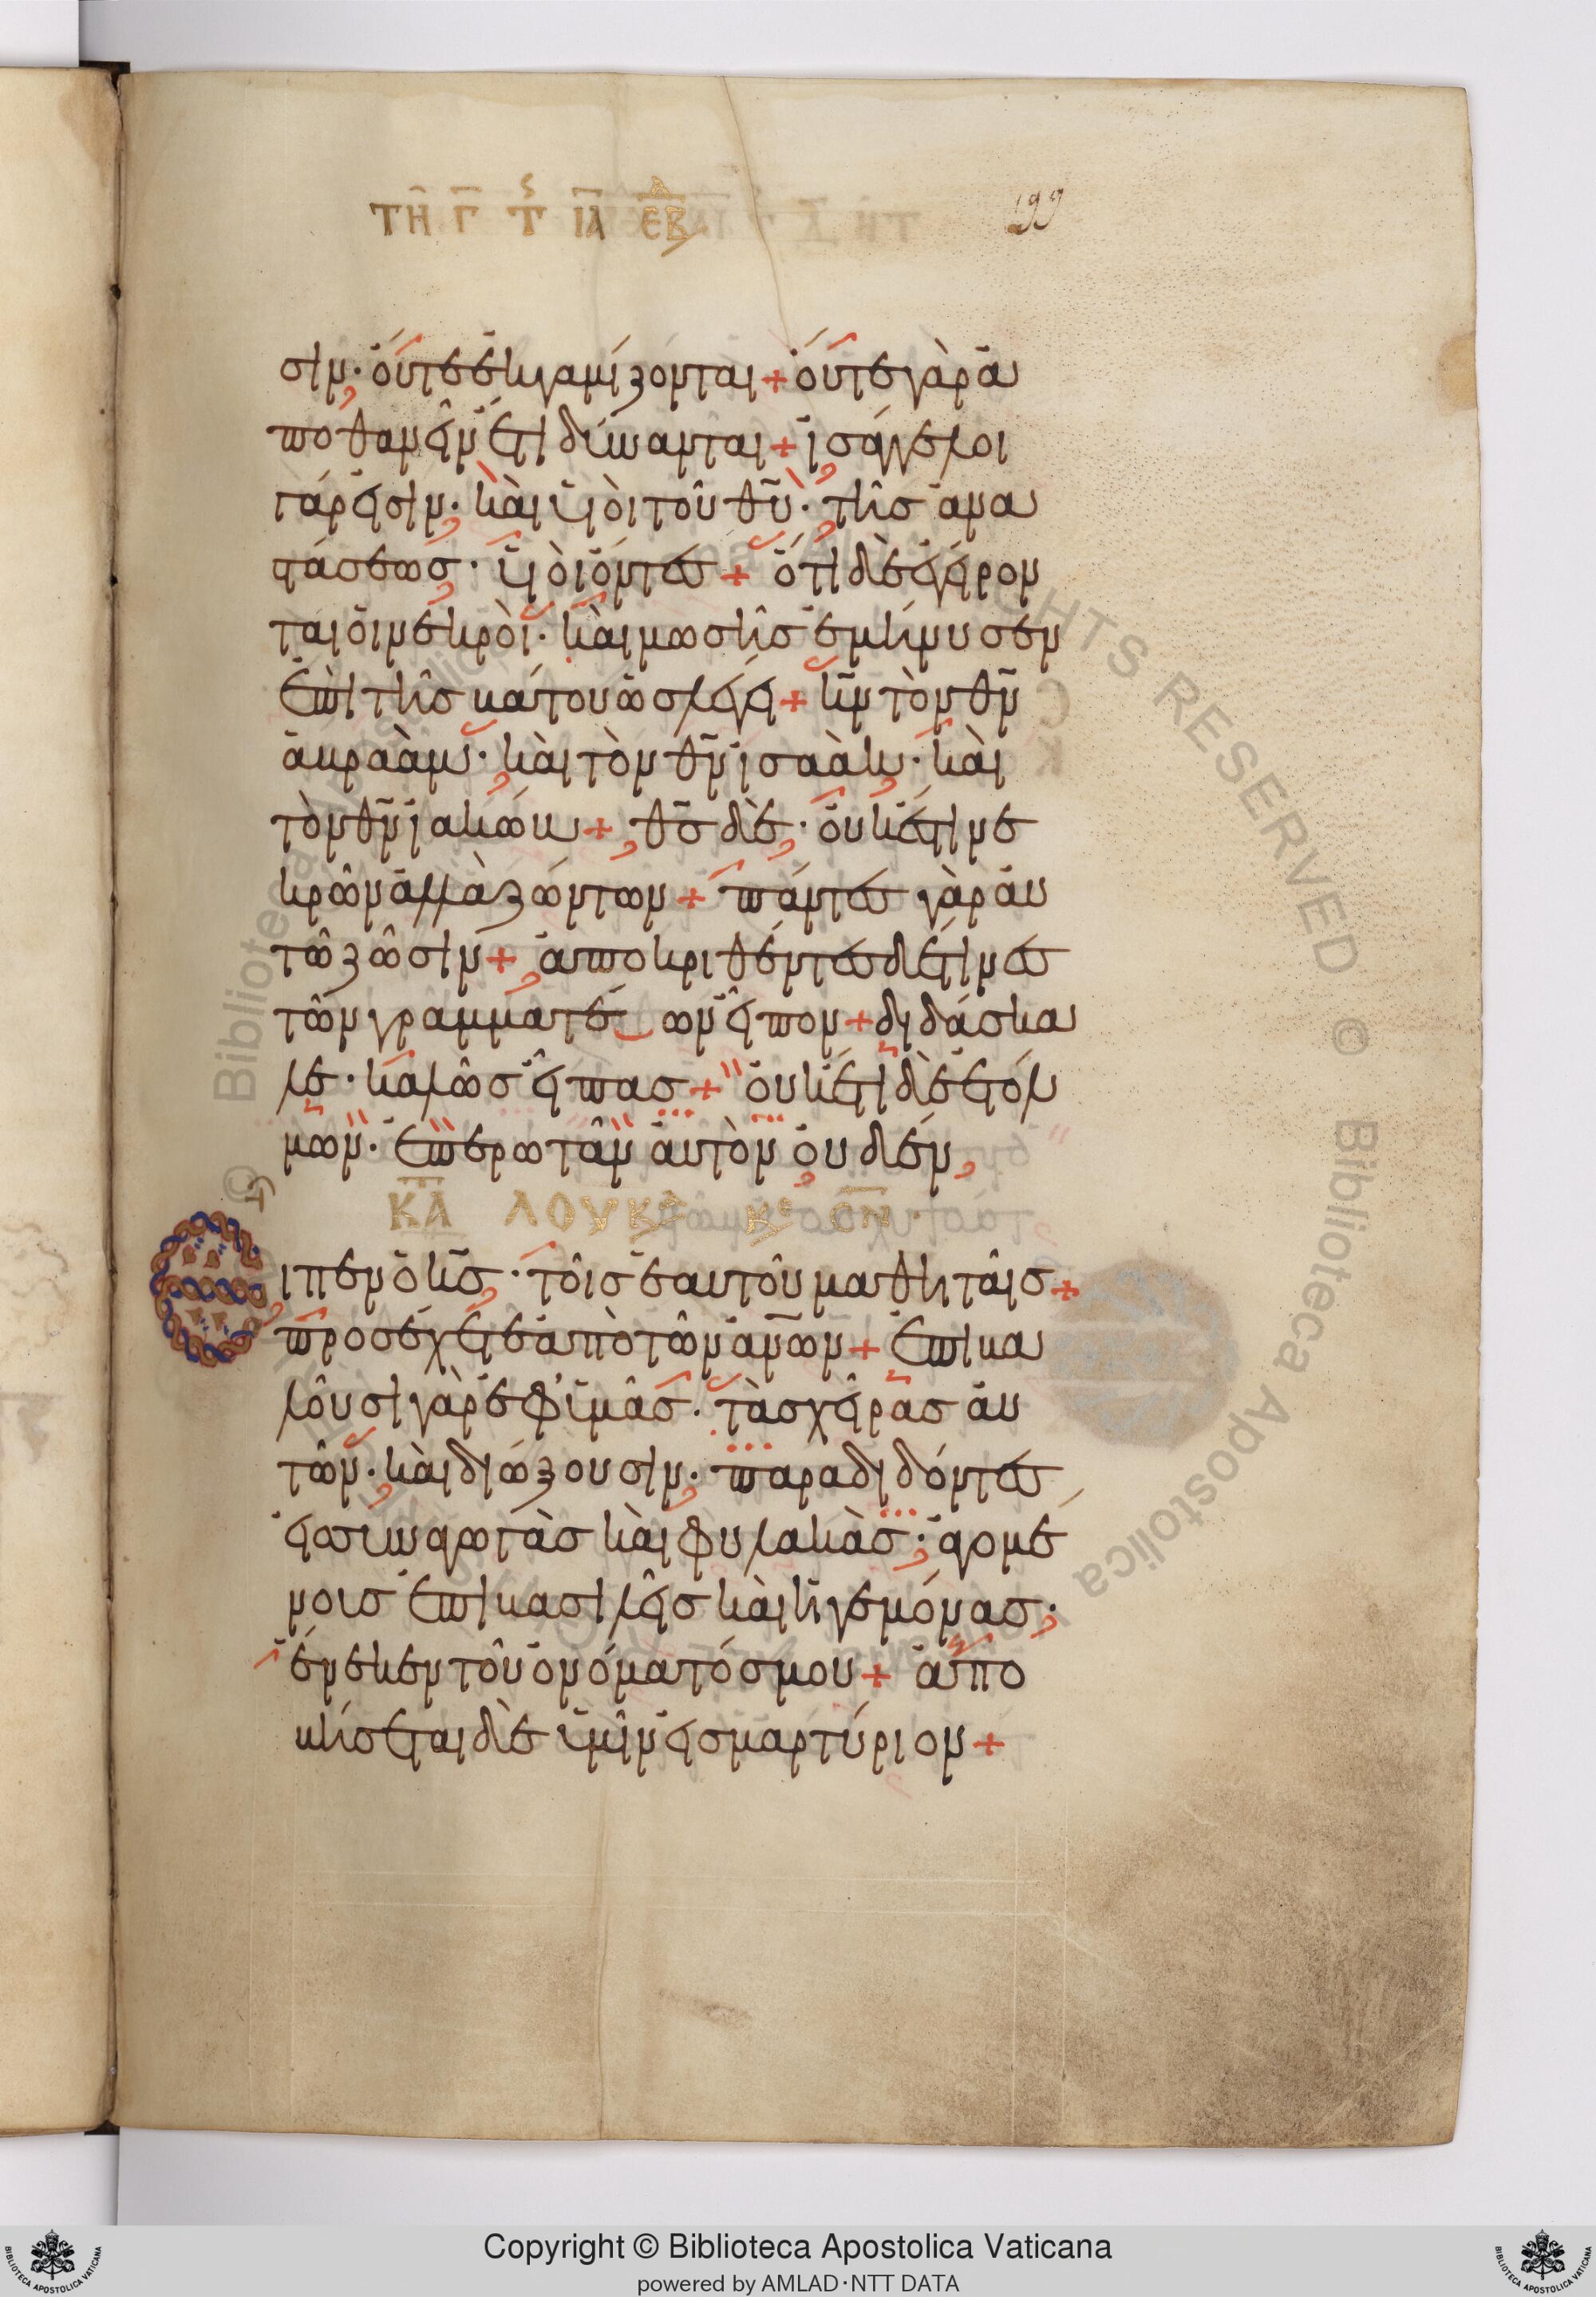 ΤΗ Γ Τ ΙΑ ΕΒΔ
199
σιν· οὔτε ἐκγαμίζονται + οὔτε γὰρ ἀ
ποθανεῖν ἔτι δύνανται + ἰσάγγελοι
γάρ εἰσιν· καὶ υἱοὶ τοῦ θυ̅· τῆς ἀνα
στάσεως· υἱοὶ ὄντες + ὅτι δὲ ἐγείρον
ται οἱ νεκροὶ· καὶ μωσῆς ἐμήνυσεν
ἐπὶ τῆς βάτου ὡς λέγει + κ̅ν̅ τὸν θν̅
ἀβραὰμ· καὶ τὸν θν̅ ἰσαὰκ· καὶ
τὸν θν̅ ἰακώβ + θς̅ δὲ· οὐκ ἔστι νε
κρῶν ἀλλὰ ζώντων + πάντες γὰρ αὐ
τῶ ζῶσιν + ἀποκριθέντες δέ τινες
τῶν γραμματέων εἶπον + διδάσκα
λε· καλῶς εἶπας + οὐκ ἔτι δὲ ἐτόλ
μων· ἐπερωτᾶν αὐτὸν οὐδέν
ΚΑΤ ΛΟΥΚ
Εἶπεν ὁ κς̅· τοῖς ἑαυτοῦ μαθηταῖς +
προσέχετε ἀπὸ τῶν αν̅ων + ἐπιβα
λοῦσι γὰρ ἐφ' ὑμᾶς· τὰς χεῖρας αὐ
τῶν· καὶ διώξουσιν· παραδιδόντες
εἰς συναγωγὰς καὶ φυλακὰς· ἀγομέ
νοις ἐπὶ βασιλεῖς καὶ ἡγεμόνας·
ἕνεκεν τοῦ ὀνόματός μου + ἀπο
βήσεται δὲ ὑμῖν εἰς μαρτύριον +
© Biblioteca Apostolica Vaticana
Copyright © Biblioteca Apostolica Vaticana
powered by AMLAD・NTT DATA